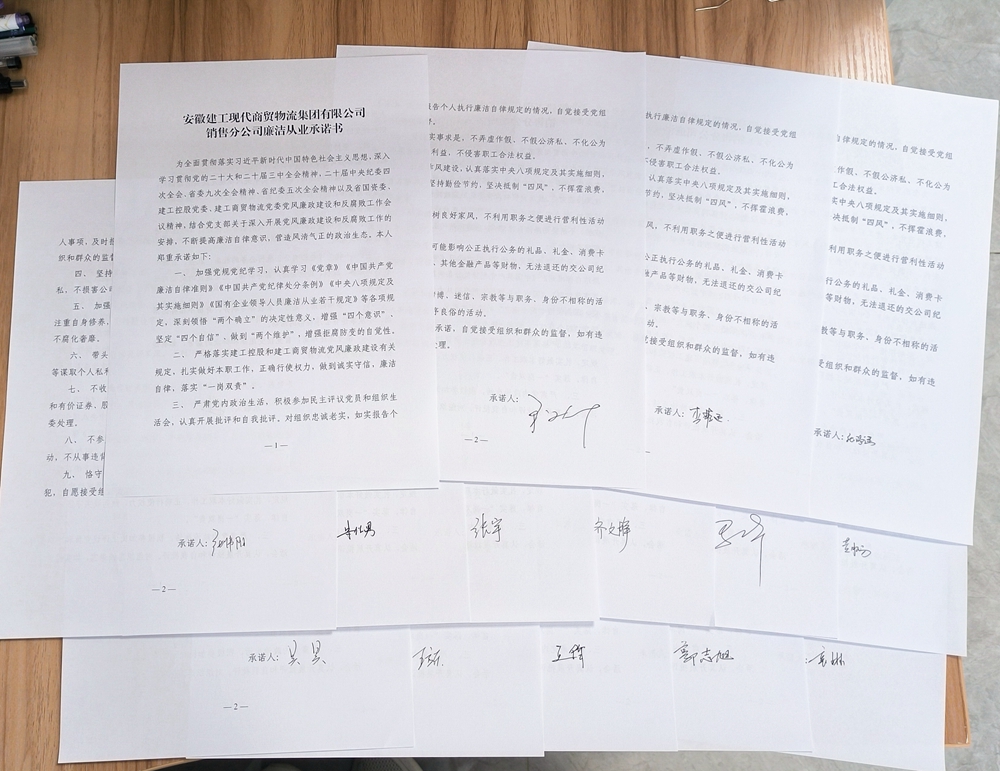 安徽建工现代商贸物流集团有限公司
销售分公司廉洁从业承诺书
为全面贯彻落实习近平新时代中国特色社会主义思想，深入
学习贯彻党的二十大和二十届三中全会精神，二十届中央纪委四
次全会、省委九次全会精神、省纪委五次全会精神以及省国资委、
建工控股党委、建工商贸物流党委党风廉政建设和反腐败工作会
议精神，结合党支部关于深入开展党风廉政建设和反腐败工作的
安排，不断提高廉洁自律意识，营造风清气正的政治生态。本人
郑重承诺如下：
一、 加强党规党纪学习，认真学习《党章》《中国共产党
廉洁自律准则》《中国共产党纪律处分条例》《中央八项规定及
其实施细则》《国有企业领导人员廉洁从业若干规定》等各项规
定，深刻领悟“两个确立”的决定性意义，增强“四个意识”、
坚定“四个自信”、做到“两个维护”，增强拒腐防变的自觉性。
二、 严格落实建工控股和建工商贸物流党风廉政建设有关
规定，扎实做好本职工作，正确行使权力，做到诚实守信，廉洁
自律，落实“一岗双责”。
三、 严肃党内政治生活，积极参加民主评议党员和组织生
活会，认真开展批评和自我批评。对组织忠诚老实，如实报告个
—1—
人事项，及时
织和群众的监
四、 坚持
私，不损害公
五、 加强
注重自身修养，
不腐化奢靡。
六、 带头
等谋取个人私
七、 不收
和有价证券、股
委处理。
八、 不参
动，不从事违
九、 恪守
犯，自愿接受组
报告个人执行廉洁自律规定的情况，自觉接受党组
实事求是，不弄虚作假、不假公济私、不化公为
利益，不侵害职工合法权益。
风建设，认真落实中央八项规定及其实施细则，
坚持勤俭节约，坚决抵制“四风”，不挥霍浪费，
树良好家风，不利用职务之便进行营利性活动
可能影响公正执行公务的礼品、礼金、消费卡
其他金融产品等财物，无法退还的交公司纪
博、迷信、宗教等与职务、身份不相称的活
序良俗的活动。
承诺，自觉接受组织和群众的监督，如有违
理。
承诺人：
—2—
执行廉洁自律规定的情况，自觉接受党组
，不弄虚作假、不假公济私、不化公为
不侵害职工合法权益。
认真落实中央八项规定及其实施细则，
节约，坚决抵制“四风”，不挥霍浪费，
风，不利用职务之便进行营利性活动
公正执行公务的礼品、礼金、消费卡
融产品等财物，无法退还的交公司纪
、宗教等与职务、身份不相称的活
动。
接受组织和群众的监督，如有违
承诺人：
自律规定的情况，自觉接受党组
作假、不假公济私、不化公为
工合法权益。
实中央八项规定及其实施细则，
抵制“四风”，不挥霍浪费，
利用职务之便进行营利性活动
行公务的礼品、礼金、消费卡
等财物，无法退还的交公司纪
教等与职务、身份不相称的活
受组织和群众的监督，如有违
承诺人：
承诺人：
张宇
齐文峰
—2—
承诺人：吴昊
王辉
郭志旭
—2—